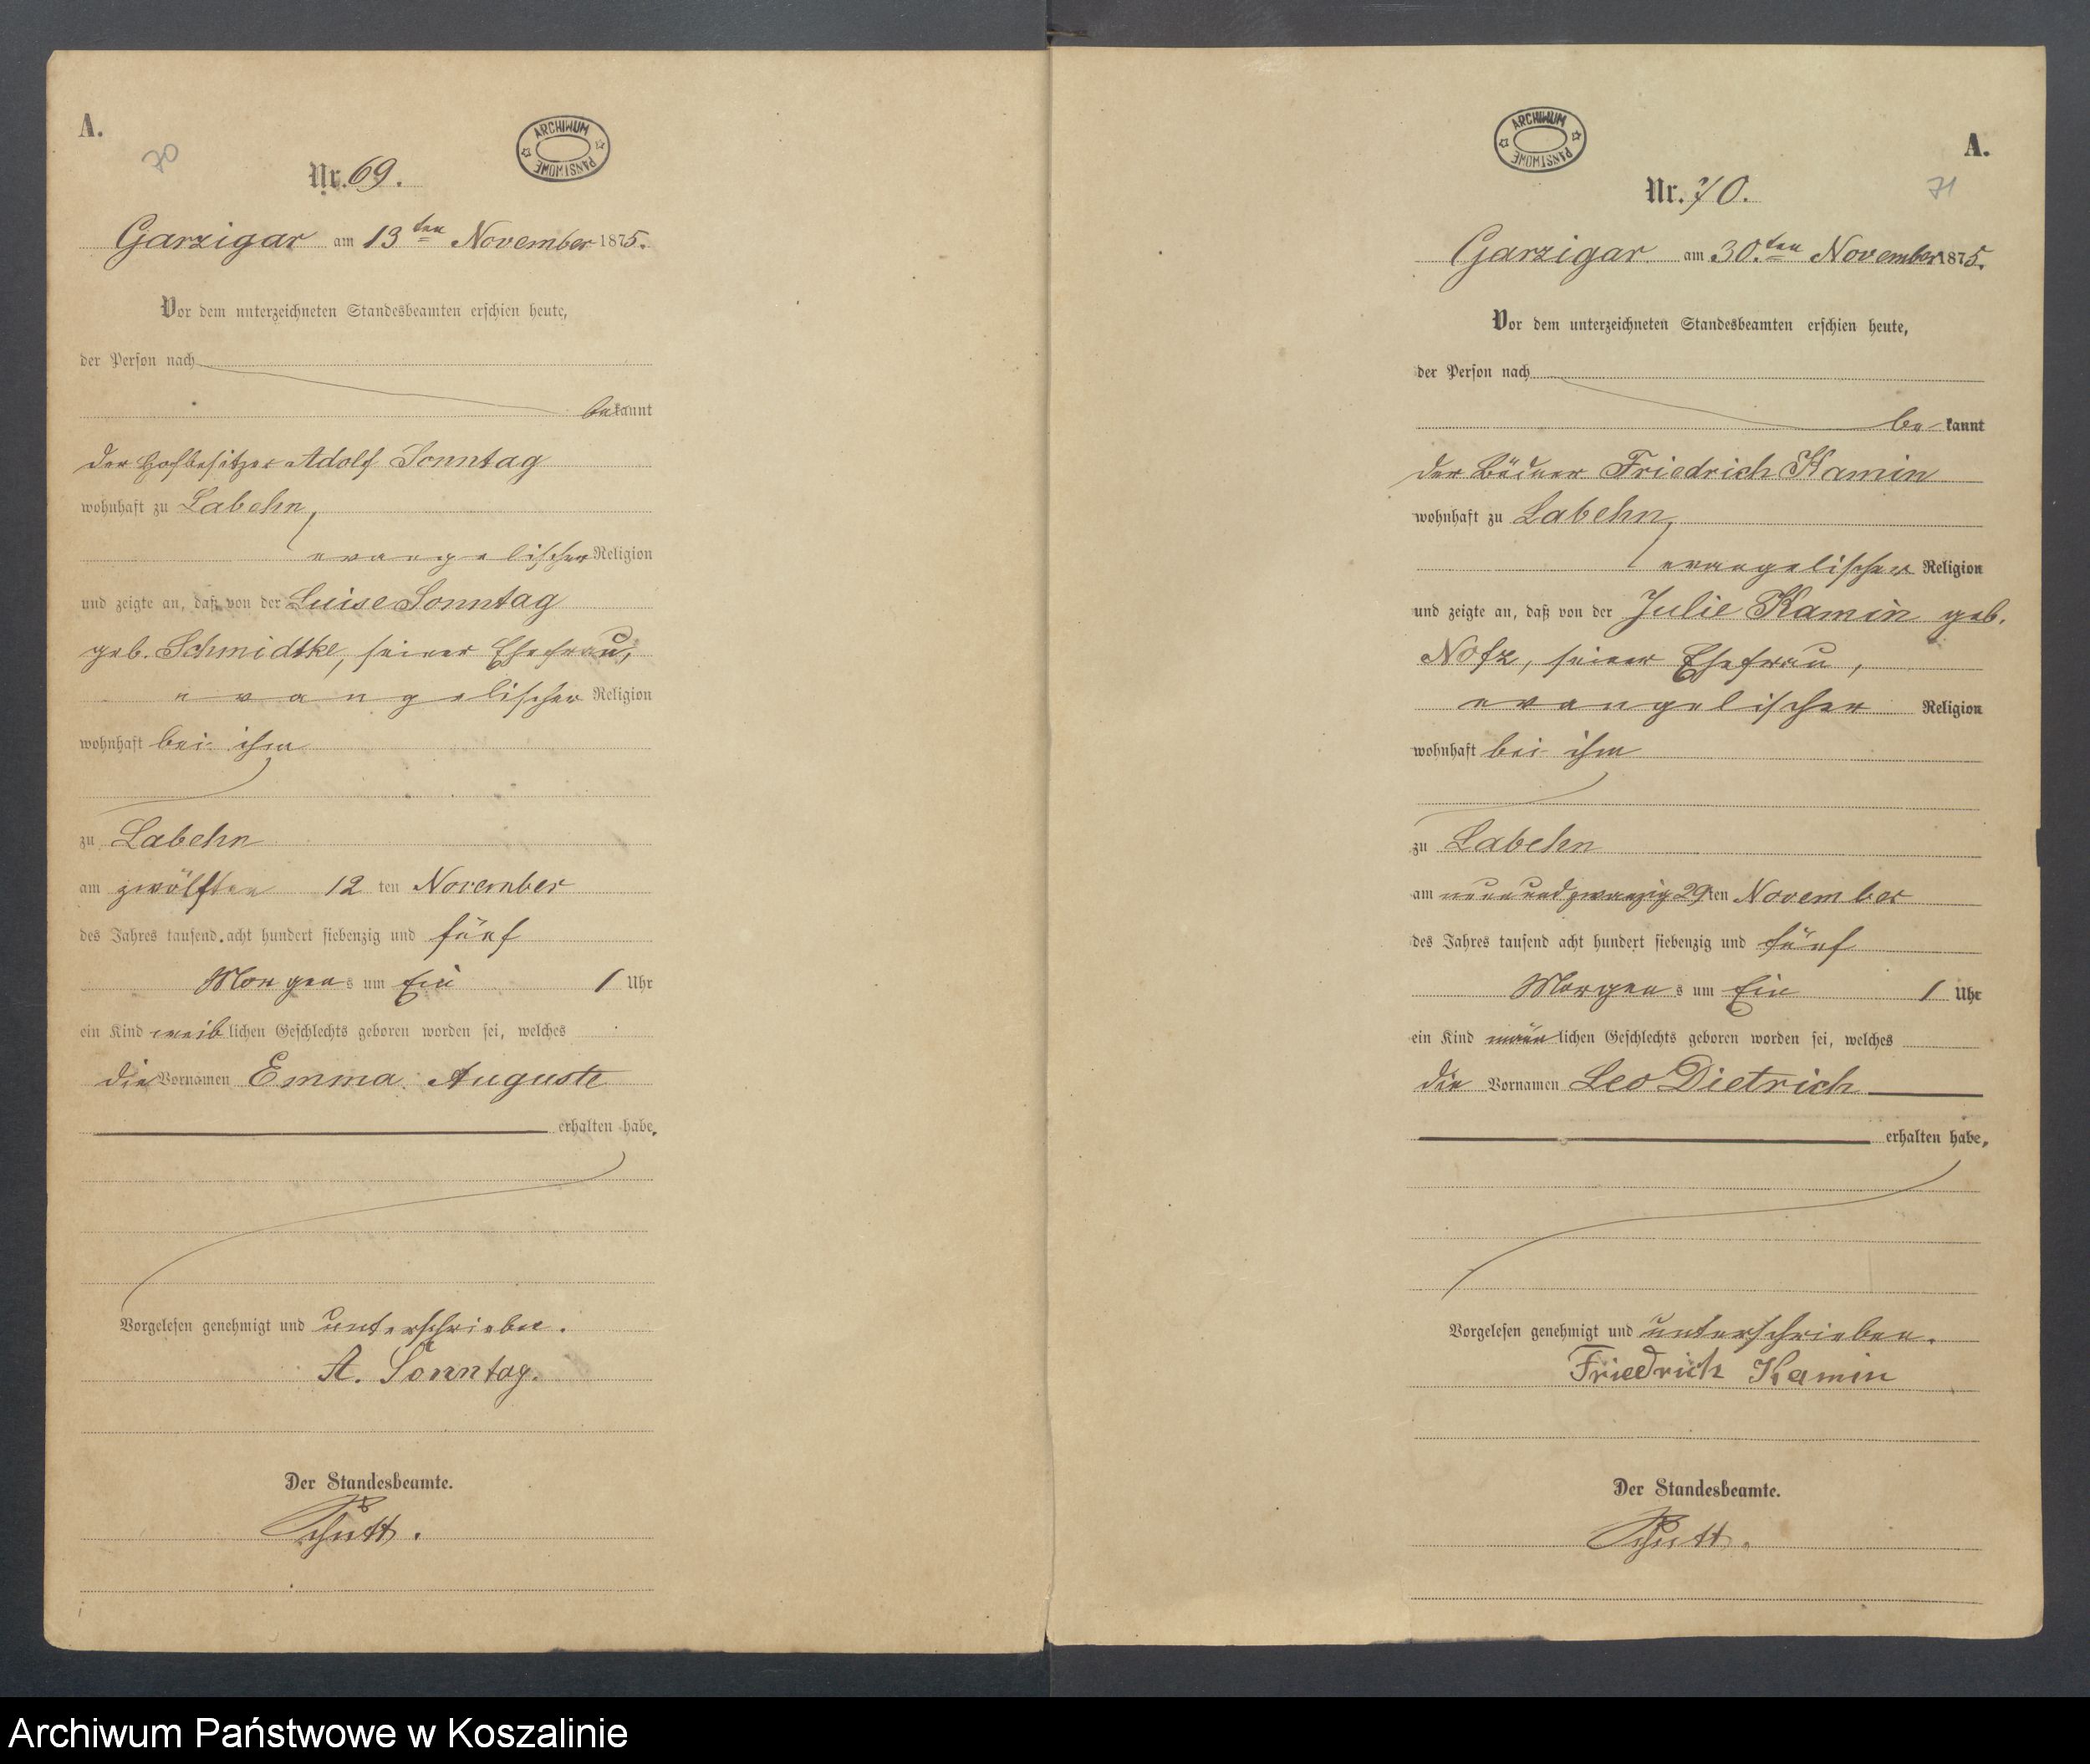 A.
70
ARCHIWUM PAŃSTWOWE
Nr. 69.
Garzigar am 13ten November 1875.
Vor dem unterzeichneten Standesbeamten erschien heute,
der Person nach
bekannt
der Hofbesitzer Adolf Sonntag
wohnhaft zu Labehn,
evangelischer Religion
und zeigte an, daß von der Luise Sonntag
geb. Schmidtke, seiner Ehefrau,
evangelischer Religion
wohnhaft bei ihm
zu Labehn
am zwölften 12 ten November
des Jahres tausend acht hundert siebenzig und fünf
Morgens um Ein 1 Uhr
ein Kind weiblichen Geschlechts geboren worden sei, welches
die Vornamen Emma Auguste
erhalten habe.
Vorgelesen genehmigt und unterschrieben.
A. Sonntag.
Der Standesbeamte.
A.
71
ARCHIWUM PAŃSTWOWE
Nr. 70.
Garzigar am 30.ten November 1875.
Vor dem unterzeichneten Standesbeamten erschien heute,
der Person nach
be- kannt
der Büdner Friedrich Kamin
wohnhaft zu Labehn,
evangelischer Religion
und zeigte an, daß von der Julie Kamin geb.
Notz, seiner Ehefrau,
evangelischer Religion
wohnhaft bei ihm
zu Labehn
am neunundzwanzig 29ten November
des Jahres tausend acht hundert siebenzig und fünf
Morgens um Ein 1 Uhr
ein Kind männlichen Geschlechts geboren worden sei, welches
die Vornamen Leo Dietrich
erhalten habe.
Vorgelesen genehmigt und unterschrieben.
Friedrich Kamin
Der Standesbeamte.
Archiwum Państwowe w Koszalinie